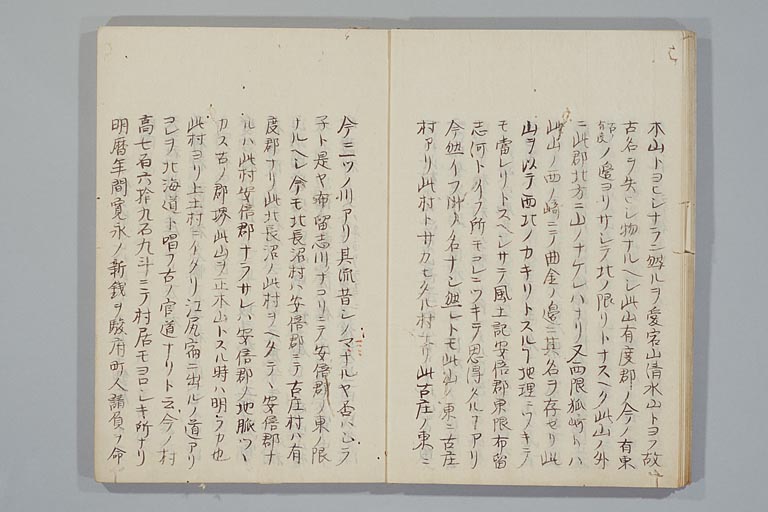 木山トヨヒシナラニ然ルヲ愛宕山清水山トヨフ故ニ
古名ヲ失ヒシ物ナルヘシ此山有度郡ノ今ノ有東
ノ邊ヨリサシテ北ノ限リトナスヘク此山ノ外
ニ此郡北方ニ山ノナケレハナリ又西限狐崎トハ
此山ノ西ノ崎ニテ曲金ノ邊ニ其名ヲ存セリ此
山ヲ以テ西北ノカキリトスルハ地理ニヲキテ
モ當レリトスヘシサテ風土記安倍郡東限布留
志河トイフ所モコレニツキテ思得タルコアリ
今然イフ川ノ名ナシ然レトモ此山ノ東ニ古庄
村アリ此村トサカヒタル村ニアリ此古庄ノ東ニ
今三ツノ川アリ其流昔シノママナルヤ否ハシラ
子ト是ヤ布留志川ナコリニテ安倍郡ノ東ノ限
ナルヘシ今モ北長沼村ハ安倍郡ニテ古庄村ハ有
度郡ナリ此北長沼ノ此村ヲヘタテヽ安倍郡ナ
ルハ此村安倍郡ナラサレハ安倍郡ノ地脈ツヽ
カス古ノ郡堺此山ヲ正木山トスル時ハ明ラカ也
此村ヨリ上土村ニイタリ江尻宿ニ出ルノ道アリ
コレヲ北海道ト唱フ古ノ官道ナリト云今ノ村
高七百六拾九石九斗ニテ村居モヨロシキ所ナリ
明暦年間寛永ノ新銭ヲ駿府町人請負ヲ命